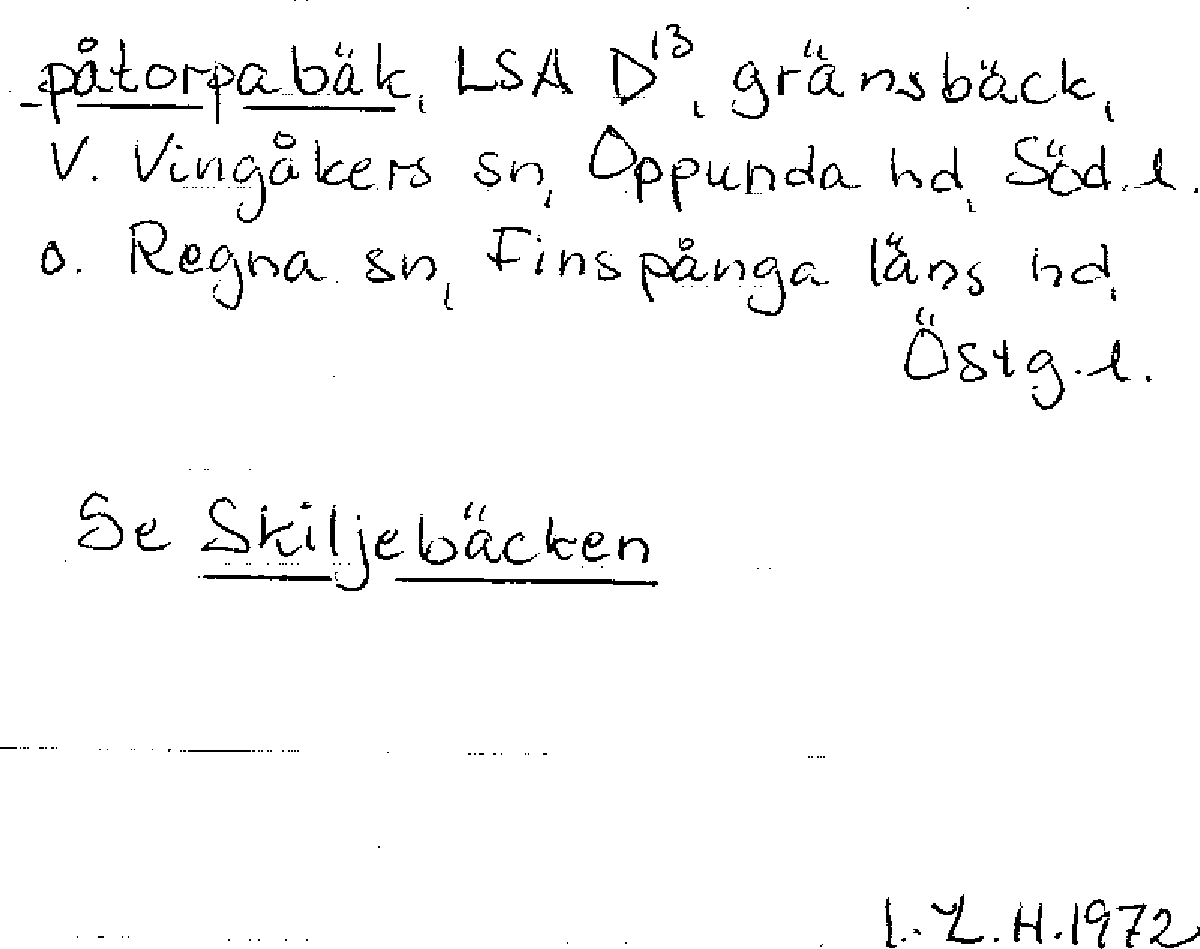 påtorpabäk, LSA D¹³, gränsbäck,
V. Vingåkers sn, Oppunda hd, Söd. l.
o. Regna sn, Finspånga läns hd,
Östg. l.
Se Skiljebäcken
I. L. H. 1972